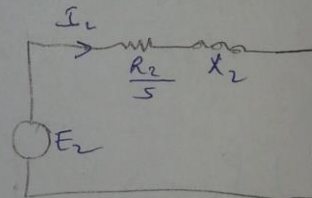 I₂
R₂/S X₂
E₂